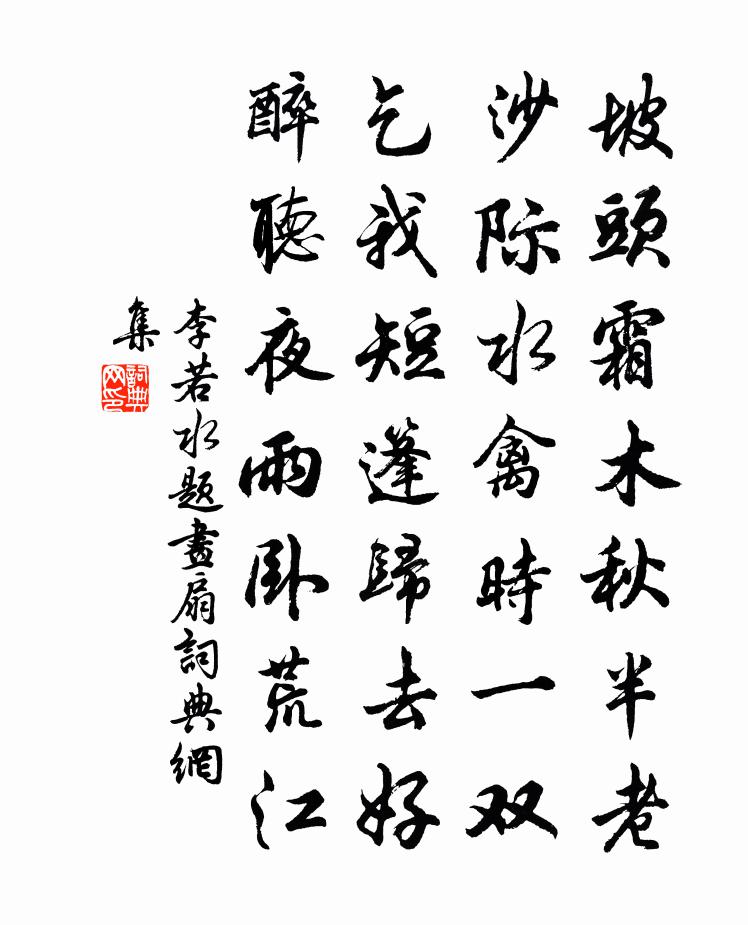 坡頭霜木秋半老
沙际水禽時一双
乞我短蓬歸去好
醉聽夜雨卧荒江
李若水题畫扇詞典網
集
詞典
网印